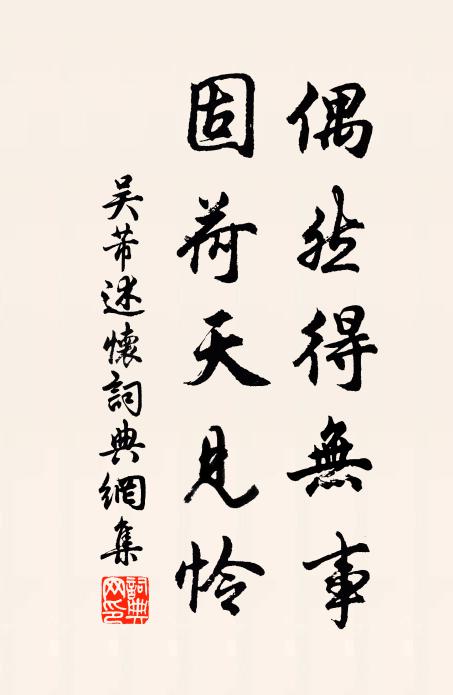 偶然得無事
固荷天見怜
吴芾述懷詞典網集
詞典网印